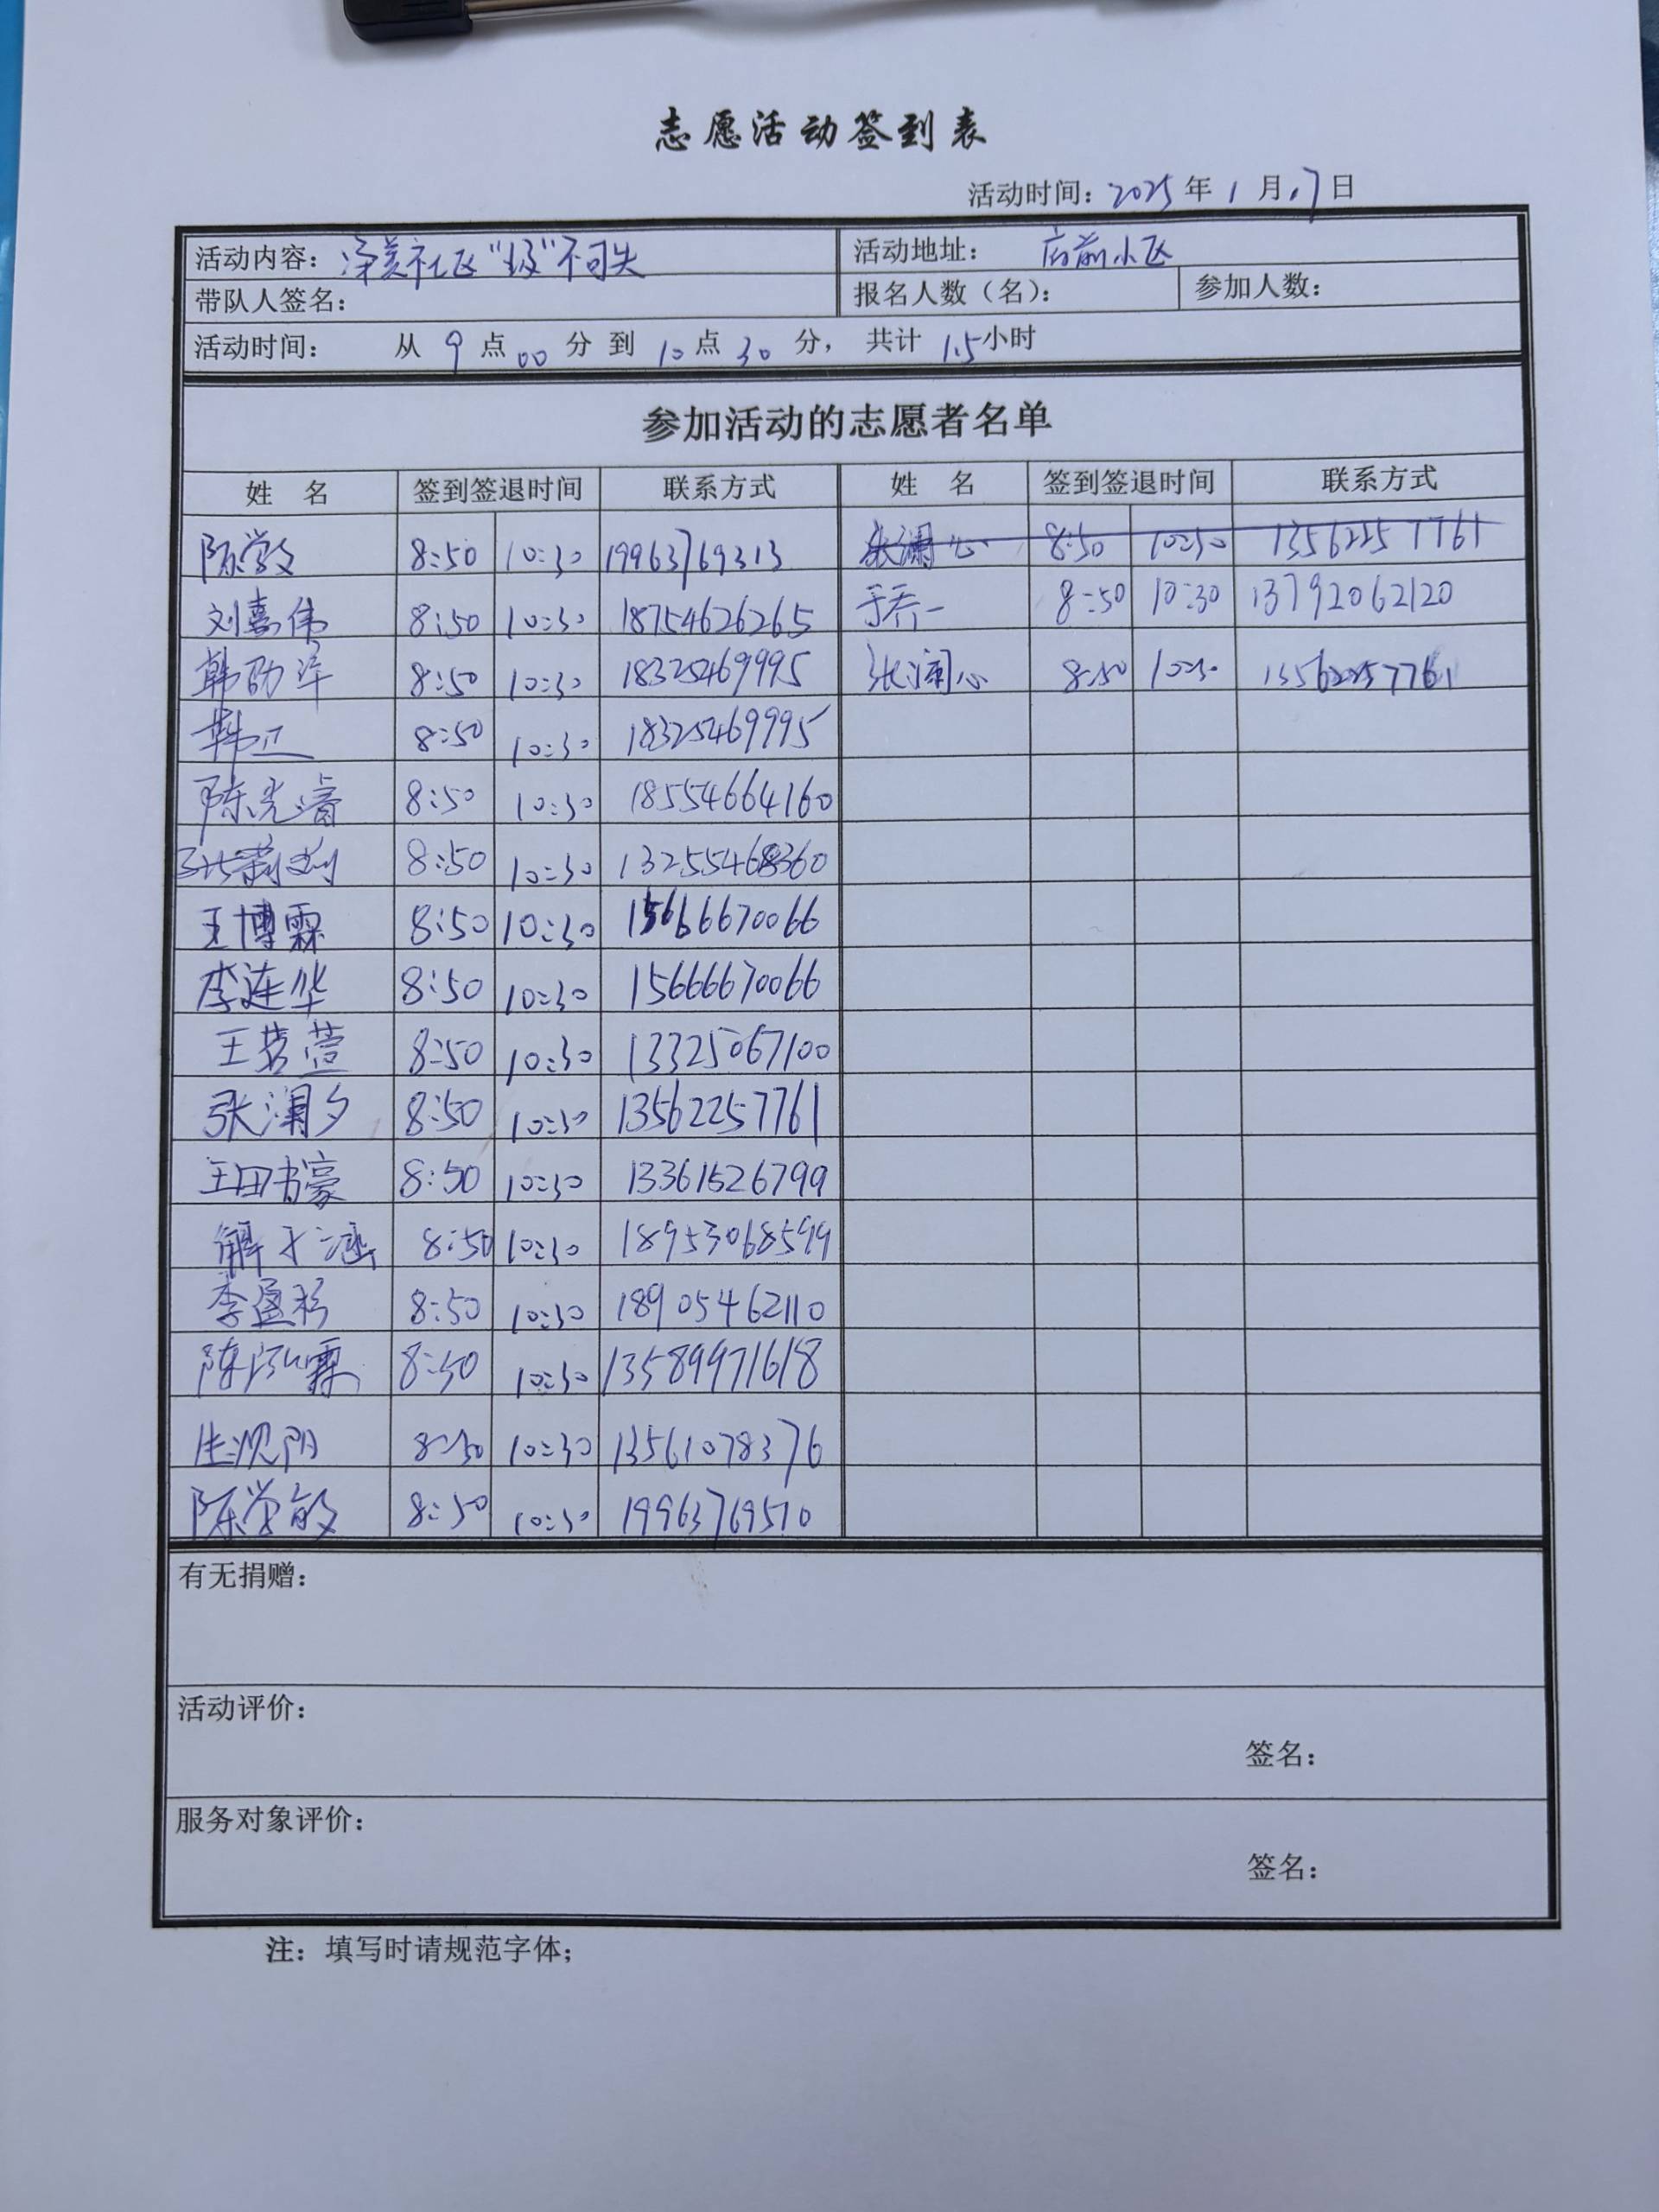 志愿活动签到表
活动时间：2025年1月17日
活动内容：净美社区“圾”不可失 活动地址：府前小区
带队人签名： 报名人数（名）： 参加人数：
活动时间： 从9点00分到10点30分，共计1.5小时
参加活动的志愿者名单
姓 名 签到签退时间 联系方式 姓 名 签到签退时间 联系方式
陈学文 8:50 10:30 19963769313 张澜心 8:50 10:30 13562257761
刘嘉伟 8:50 10:30 18754626265 于乔一 8:50 10:30 13792062120
韩劭洋 8:50 10:30 18325469995 张澜心 8:50 10:30 13562257761
韩正 8:50 10:30 18325469995
陈光睿 8:50 10:30 18554664160
8:50 10:30 13255468360
王博霖 8:50 10:30 15666670066
李连华 8:50 10:30 15666670066
王茗萱 8:50 10:30 13325067100
张澜夕 8:50 10:30 13562257761
王田书豪 8:50 10:30 13361526799
解 涵 8:50 10:30 18953068599
李盈杉 8:50 10:30 18905462110
陈泓霖 8:50 10:30 13589971618
8:50 10:30 13561078376
陈学敏 8:50 10:30 19963769570
有无捐赠：
活动评价：
签名：
服务对象评价：
签名：
注：填写时请规范字体；